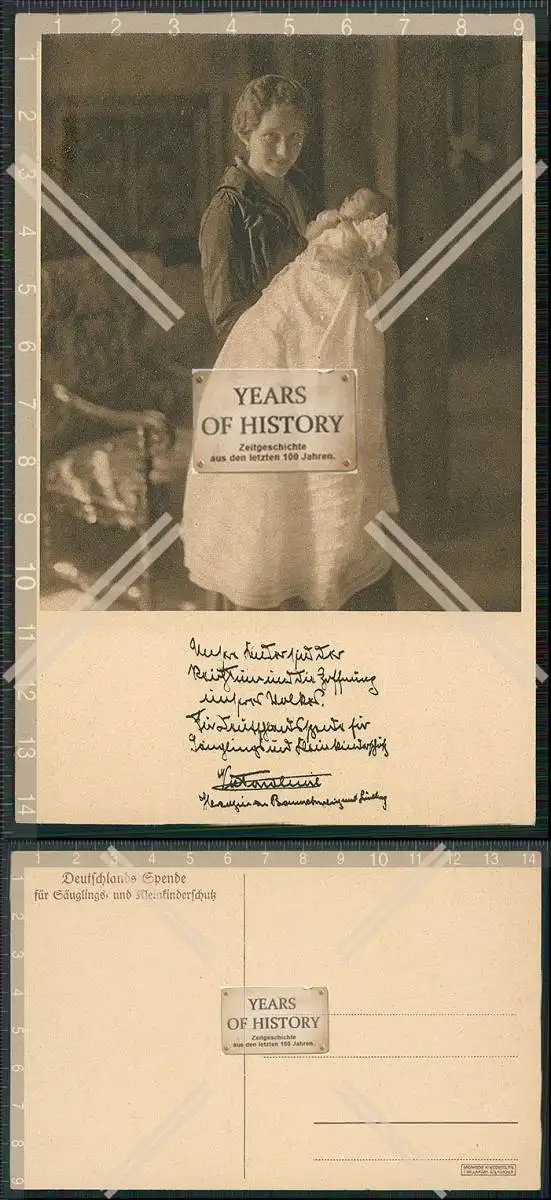 1 2 3 4 5 6 7 8 9
1
2
3
4
5
6
7
8
9
10
11
12
13
14
YEARS
OF HISTORY
Zeitgeschichte
aus den letzten 100 Jahren.
Unsre Kinder sind der
Reichtum und die Hoffnung
unsres Volkes.
Für Deutschlands Spende für
Säuglings und Kleinkinderschutz
Herzogin zu Braunschweig und Lünebg
1 2 3 4 5 6 7 8 9 10 11 12 13 14
Deutschlands Spende
für Säuglings- und Kleinkinderschutz
1
2
3
4
5
6
7
8
9
YEARS
OF HISTORY
Zeitgeschichte
aus den letzten 100 Jahren.